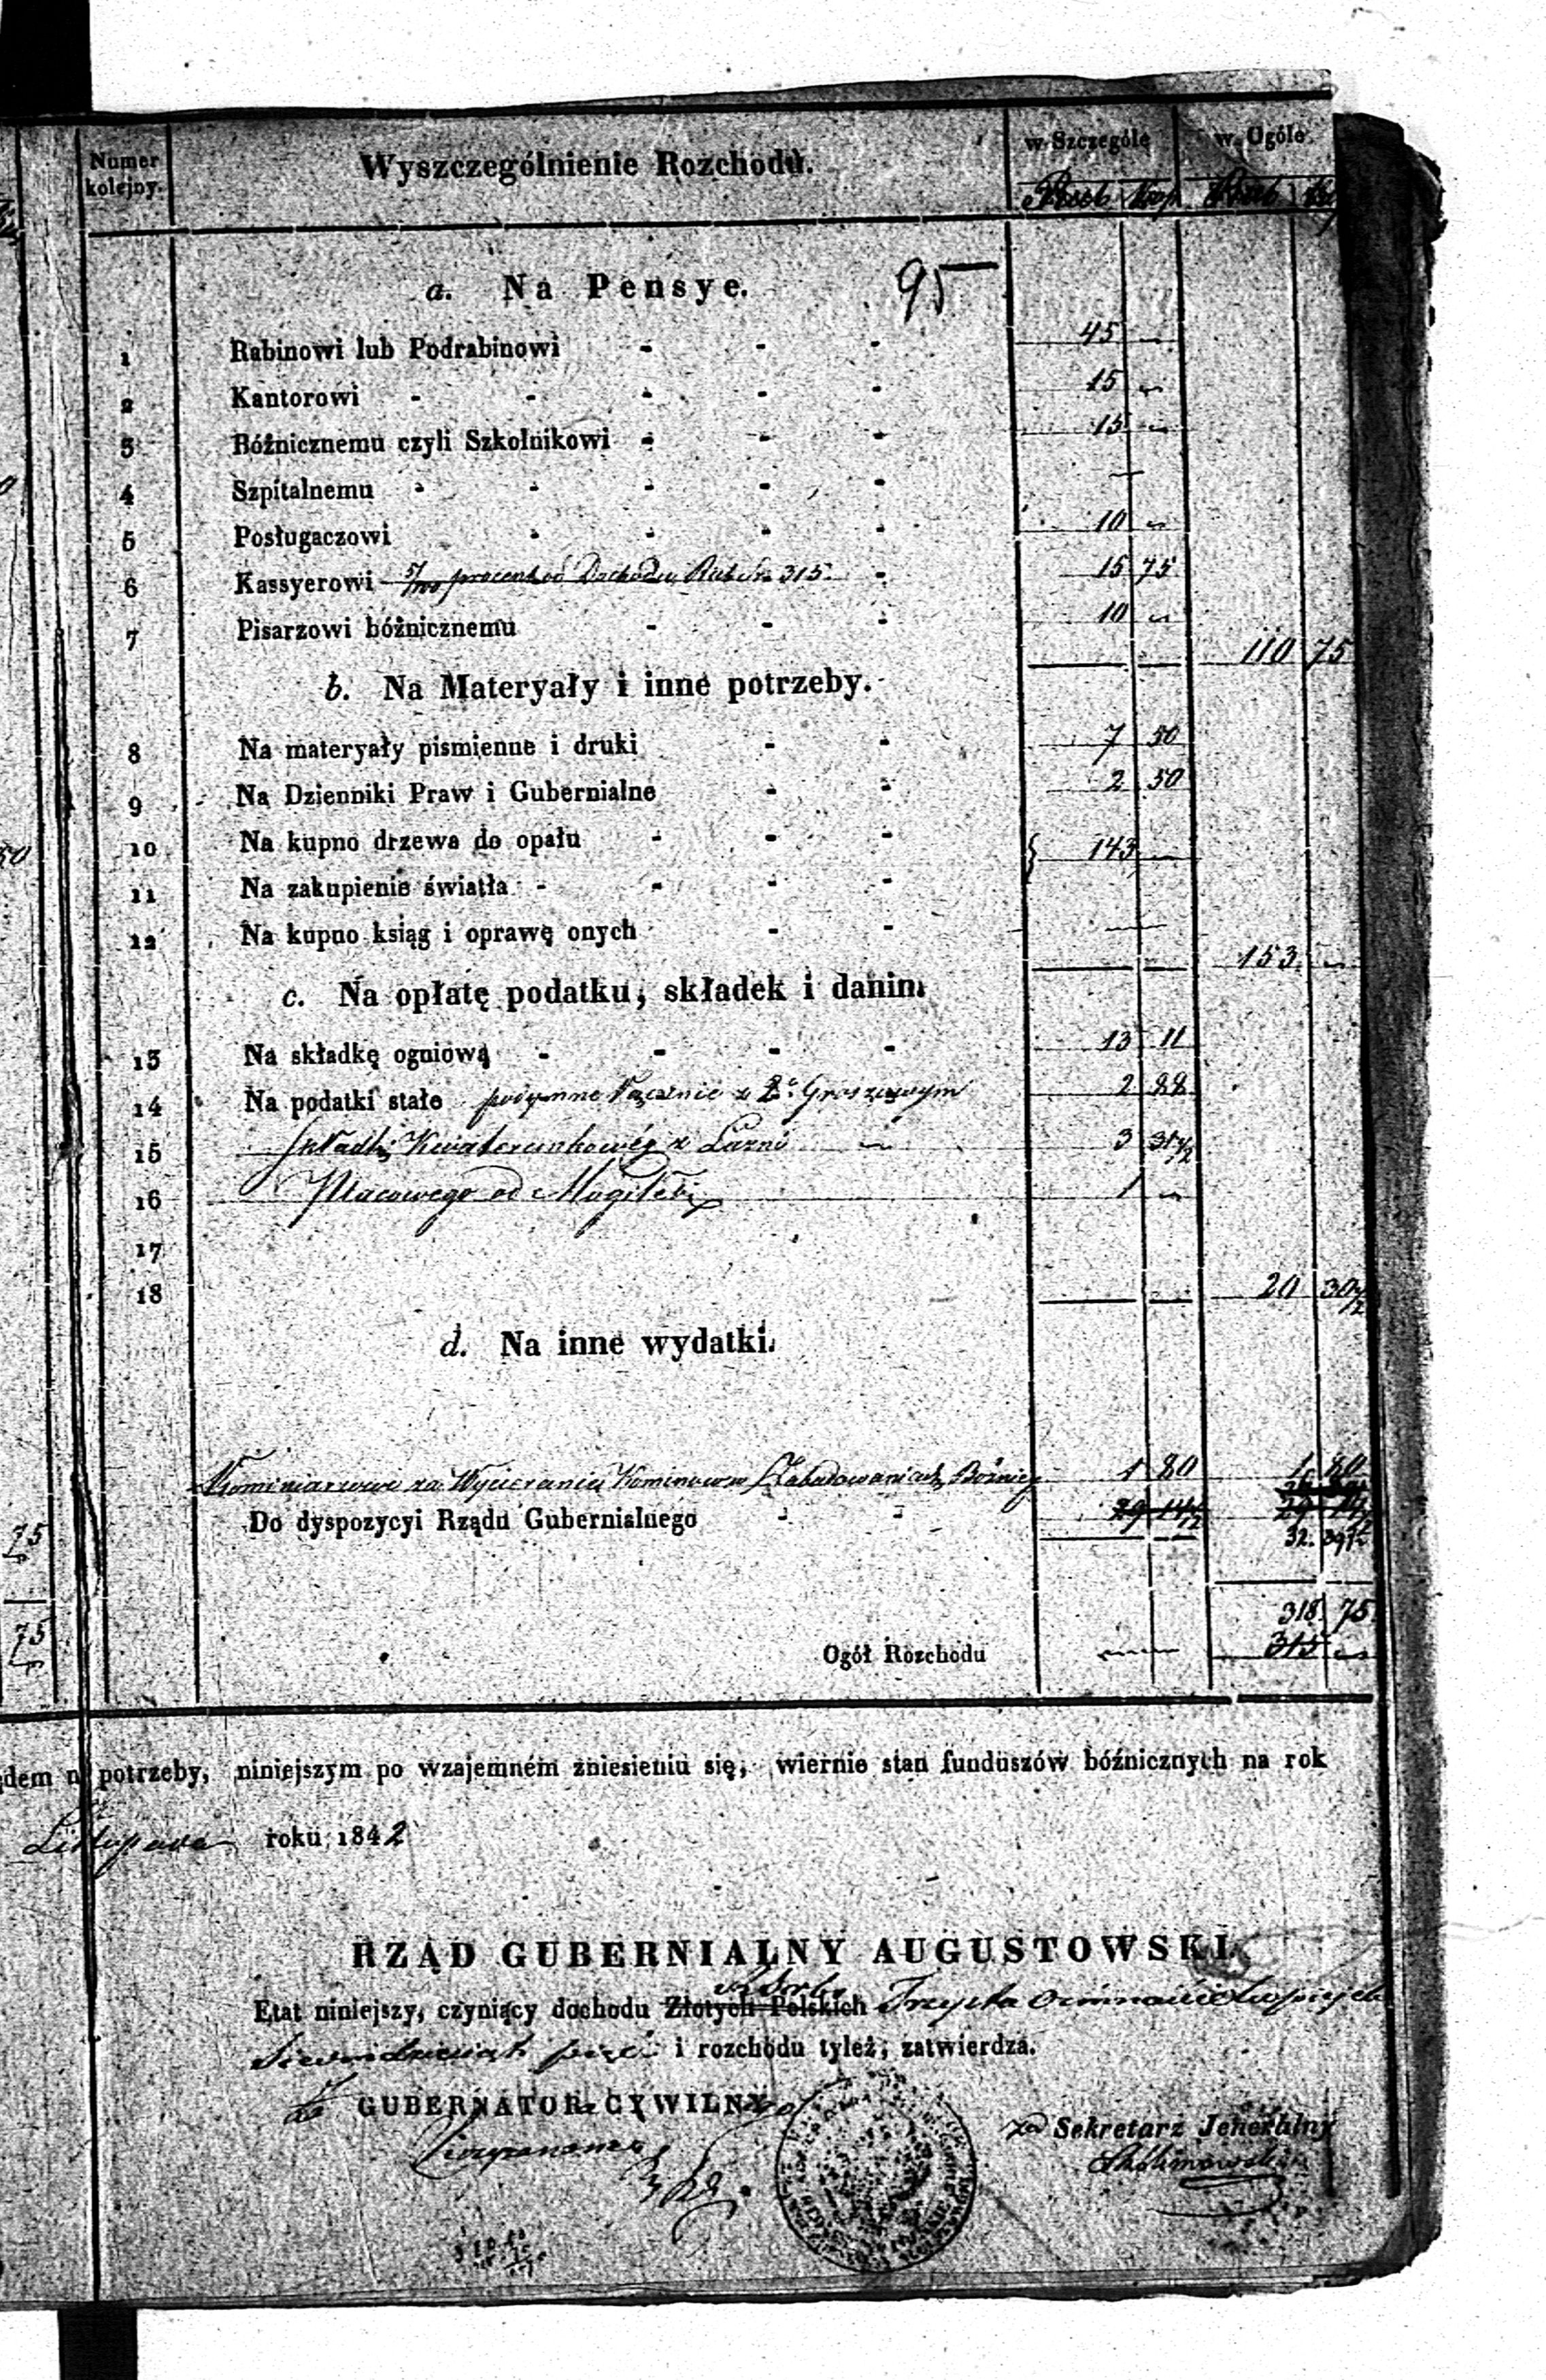 Numer kolejny.
Wyszczególnienie Rozchodu.
w Szczególe
w Ogóle.
Rub Kop Rub Kop
a. Na Pensye.
95
1 Rabinowi lub Podrabinowi - - - 45 -
2 Kantorowi - - - - - 15 -
3 Bóżnicznemu czyli Szkolnikowi - - - 15 -
4 Szpitalnemu - - - - - —
5 Posługaczowi - - - - 10 -
6 Kassyerowi 5/100 procent od Dochodu Rub Sr. 315. - 15 75
7 Pisarzowi bóżnicznemu - - - 10 -
110 75
b. Na Materyały i inne potrzeby.
8 Na materyały pismienne i druki - - 7 50
9 Na Dzienniki Praw i Gubernialne - - 2 50
10 Na kupno drzewa do opału - - - } 143 -
11 Na zakupienie światła - - - -
12 Na kupno ksiąg i oprawę onych - - —
153 -
c. Na opłatę podatku, składek i danin.
13 Na składkę ogniową - - - - 13 11
14 Na podatki stałe podymne łącznie z 2. Groszowym 2 88
15 Składki Kwaterunkowéj z Łaźni - 3 31 1/2
16 Placowego od Mogiłek 1 -
17
18
20 30 1/2
d. Na inne wydatki.
Kominiarzowi za Wycieranie Kominów w Zabudowaniach Bóżnicy 1 80 1 80
Do dyspozycyi Rządu Gubernialnego - - 29 14 1/2 29 14 1/2
32. 89 1/2
318. 75.
Ogół Rozchodu — 315 -
75
75
potrzeby, niniejszym po wzajemném zniesieniu się, wiernie stan funduszów bóżnicznych na rok
Listopada roku 1842
RZĄD GUBERNIALNY AUGUSTOWSKI.
Etat niniejszy, czyniący dochodu Złotych Polskich Trzysta Ośmnaście kopiejek
Siedmdziesiąt pięć i rozchodu tyleż, zatwierdza.
GUBERNATOR CYWILNY
za Sekretarz Jeneralny